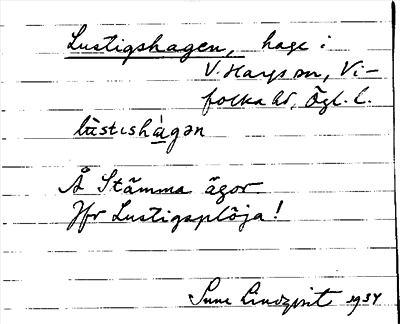 Lustigshagen, hage i
V. Harg sn, Vi-
folka hd, Ögl. l.
lùstɩshàgən
Å Stämma ägor.
Jfr Lustigsplöja!
Sune Lindqvist 1934